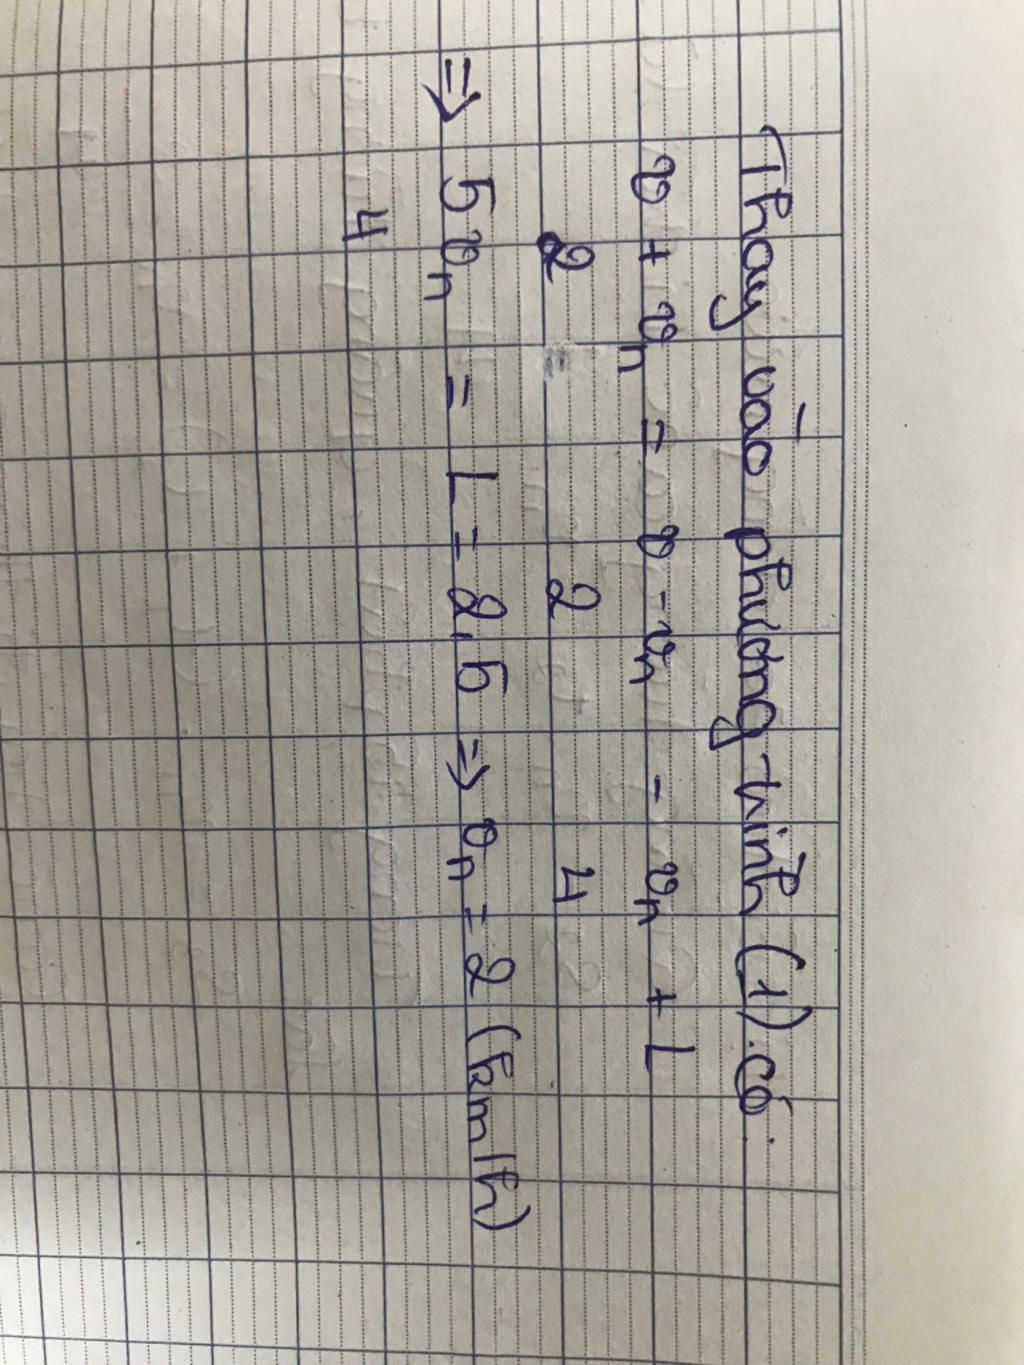 Thay vào phương trình (1) có
v + vn = v - vn - vn + L
2 2 4
=> 5vn = L = 2,5 => vn = 2 (km/h)
4